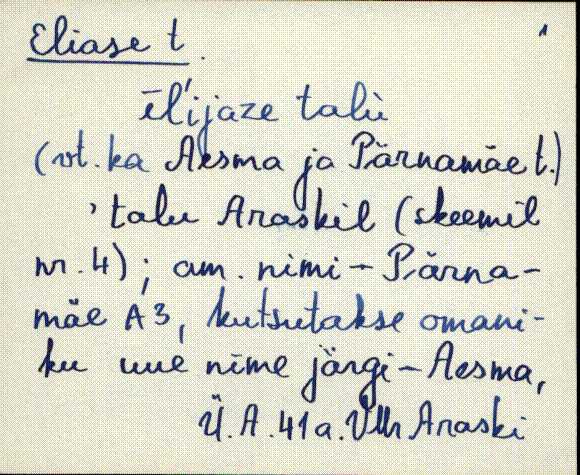 Eliase t.
1
ēl'ijaze talù
(vt. ka Aesma ja Pärnamäe t.)
' talu Araskil (skeemil
nr. 4); am. nimi - Pärna-
mäe A3, kutsutakse omani-
ku uue nime järgi - Aesma,
Ü. A. 41a. VMr Araski